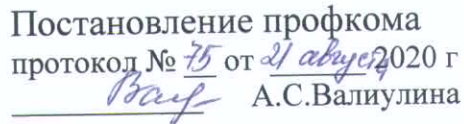 Постановление профкома
протокол № 75 от 21 августа 2020 г
А.С.Валиулина